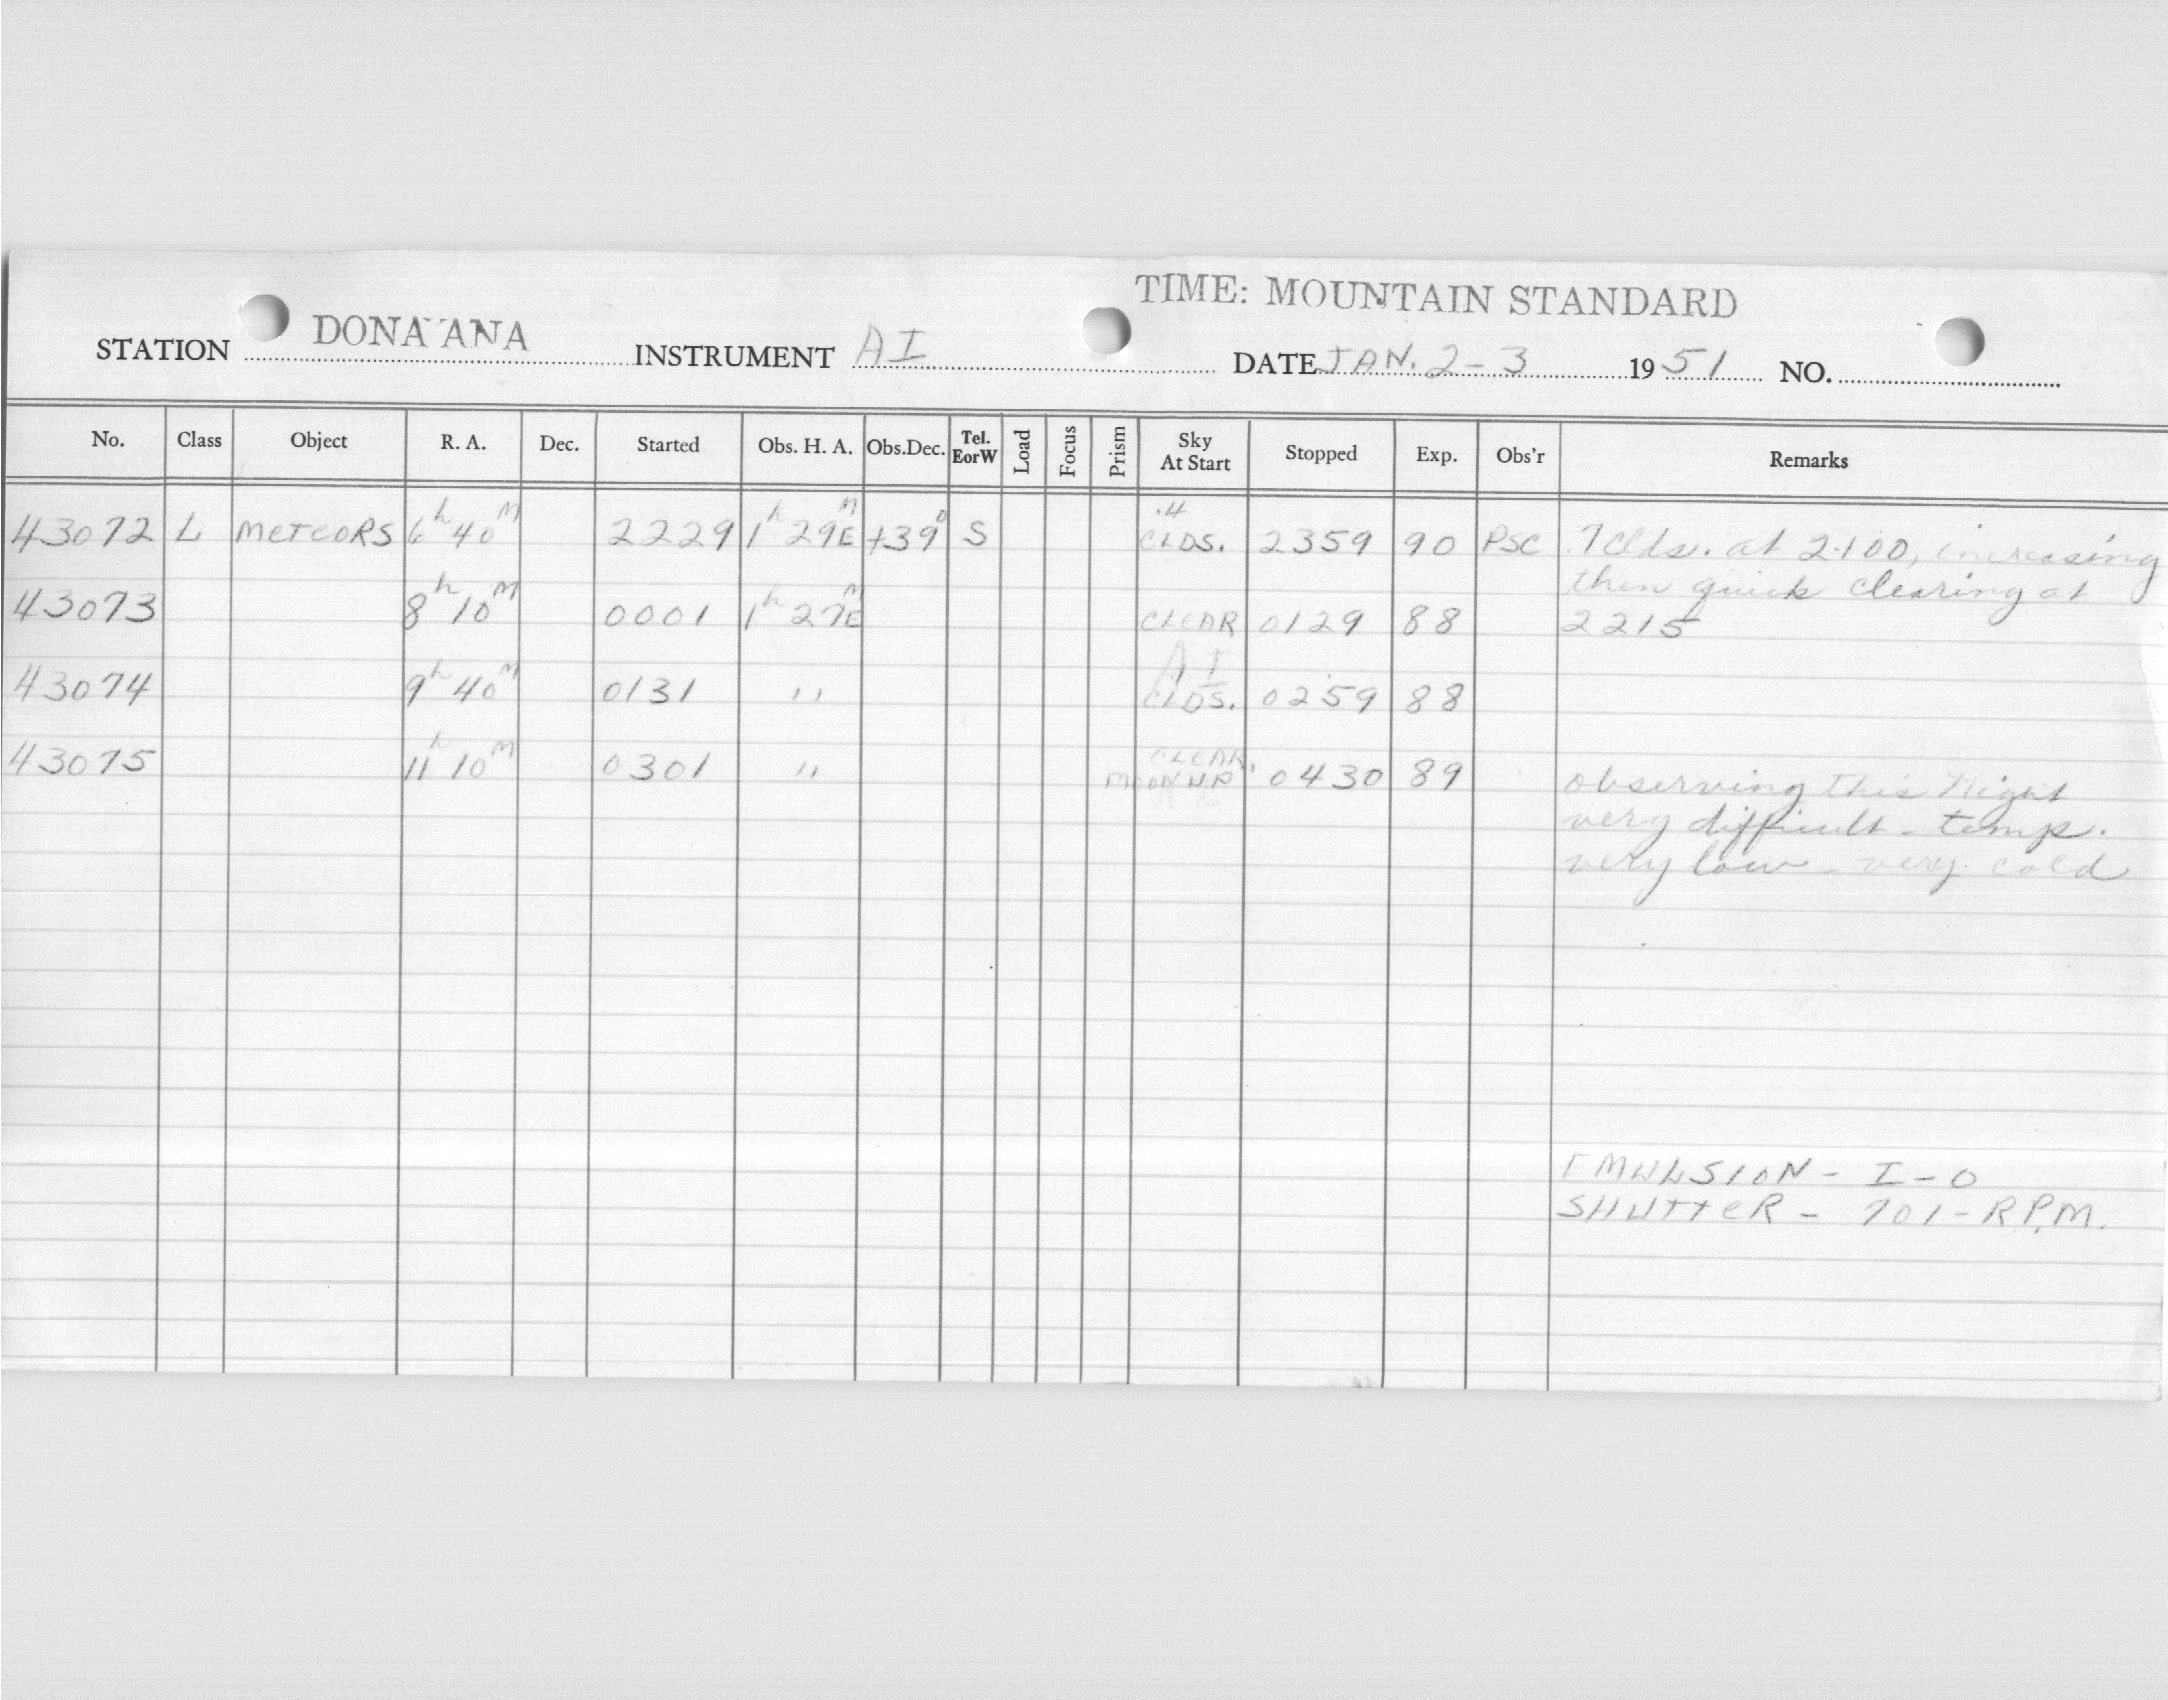 TIME: MOUNTAIN STANDARD
STATION DONA ANA INSTRUMENT AI DATE JAN. 2-3 1951 NO.
No. Class Object R. A. Dec. Started Obs. H. A. Obs.Dec. Tel. EorW Load Focus Prism Sky At Start Stopped Exp. Obs'r Remarks
43072 L METEORS 6h 40M 2229 1h 29M E +39° S .4 CLDS. 2359 90 PSC .7 Clds. at 2100, increasing
then quick clearing at
43073 8h 10M 0001 1h 27M E CLEAR 0129 88 2215
AI
43074 9h 40M 0131 " CLDS. 0259 88
43075 11h 10M 0301 " CLEAR, MOON UP 0430 89 observing this night
very difficult - temp.
very low - very cold
EMULSION - I-O
SHUTTER - 701 - R.P.M.